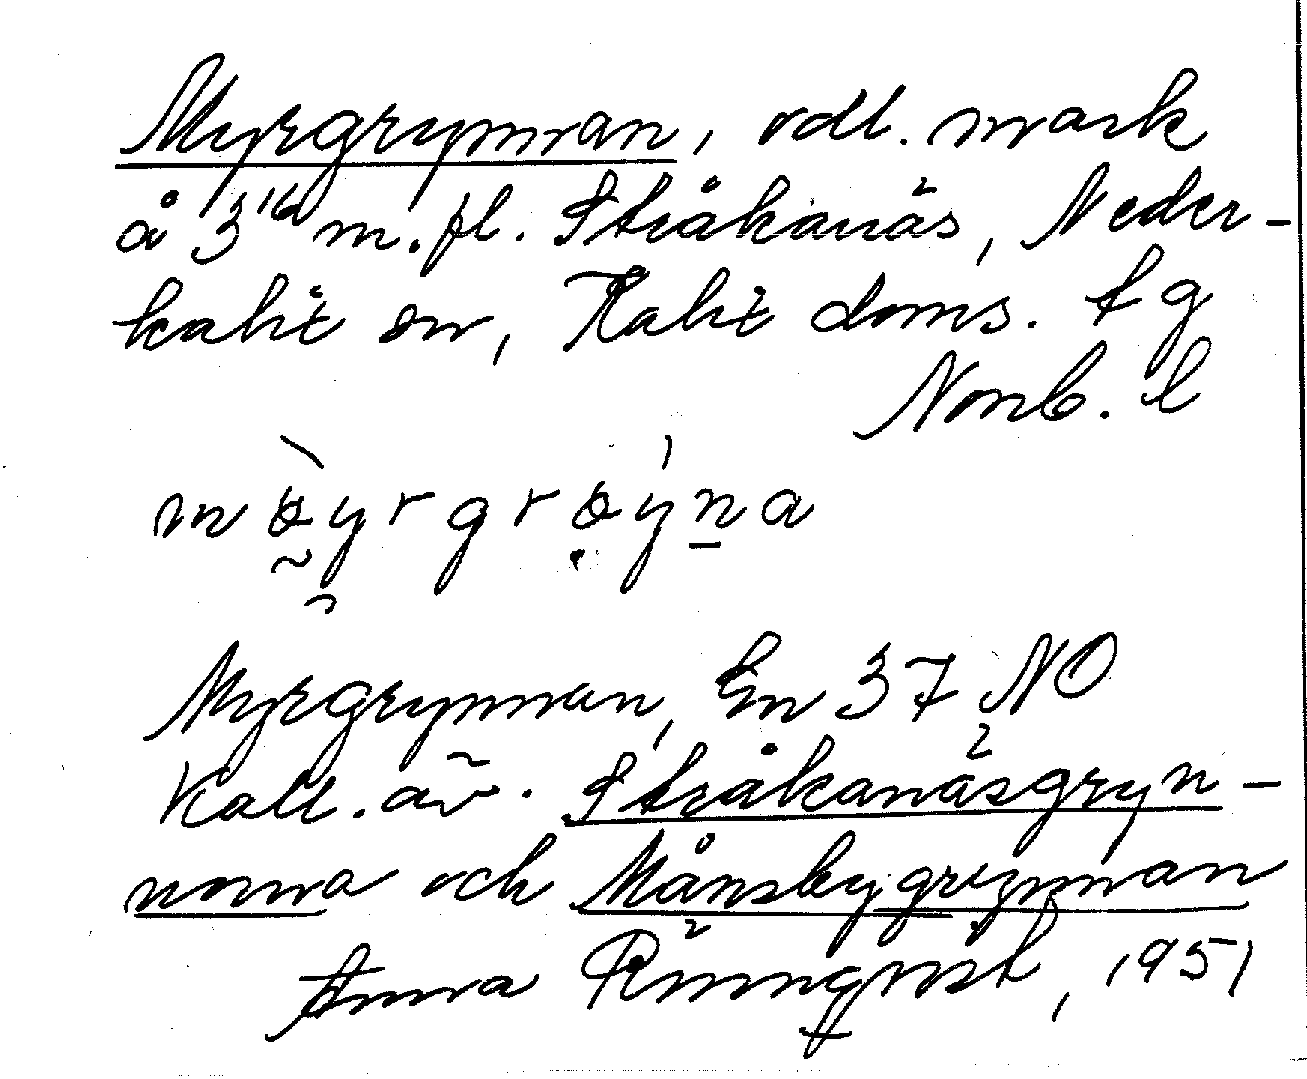 Myrgrynnan, odl. mark
å 3¹⁶ m.fl. Stråkanäs, Neder-
kalix sn, Kalix doms. tg
Norrb. l
Myrgrynnan, En 37 NO
Kall. av. Stråkanäsgryn-
norna och Månsbygrynnan
Anna Rönnqvist, 1951